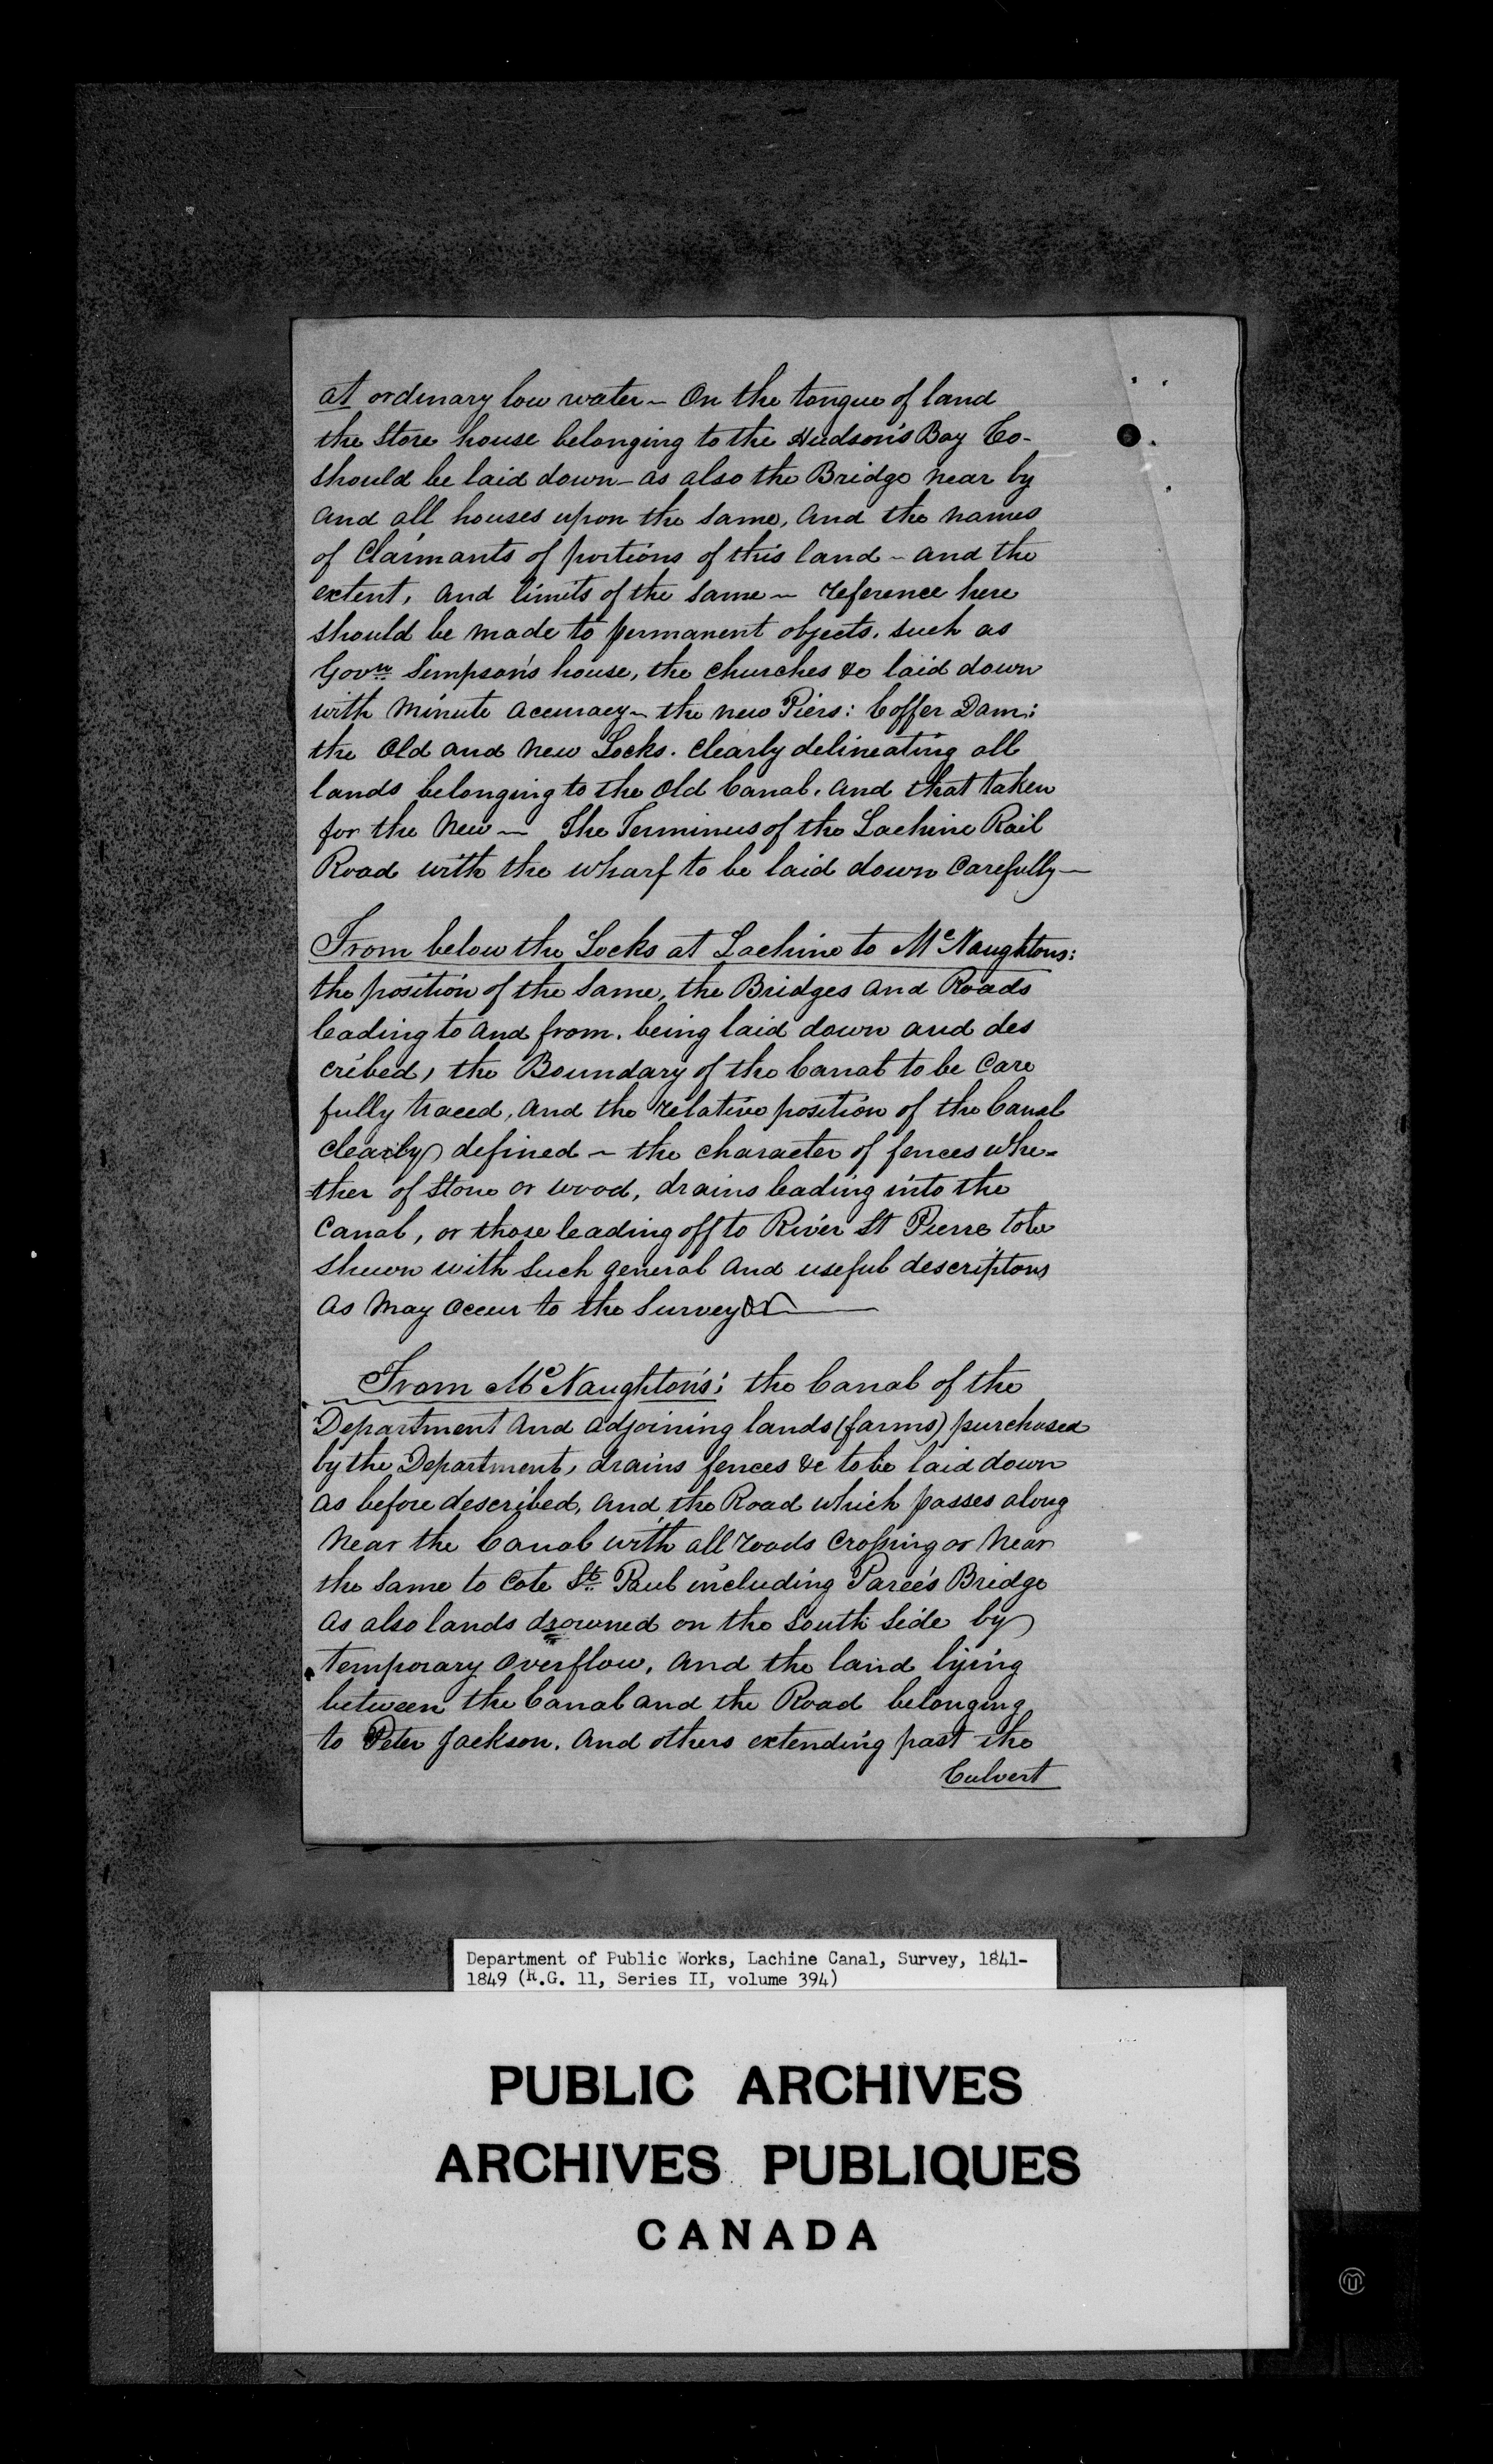 at ordinary low water ~ On the tongue of land
the Store house belonging to the Hudson's Bay Co-
should be laid down - as also the Bridge near by
and all houses upon the same, and the names
of Claimants of portions of this land ~ and the
extent, and limits of the same ~ reference here
should be made to permanent objects, such as
Govr Simpson's house, the churches &c laid down
with minute accuracy ~ the new Piers: Coffer Dam:
the Old and new Locks. clearly delineating all
lands belonging to the Old Canal, and that taken
for the New — The Terminus of the Lachine Rail
Road with the wharf to be laid down carefully —
From below the Locks at Lachine to McNaughtons:
the position of the same, the Bridges and Roads
leading to and from, being laid down and des
cribed, the Boundary of the Canal to be care
fully traced, and the relative position of the Canal
clearly defined ~ the character of fences whe=
=ther of Stone or wood, drains leading into the
Canal, or those leading off to River St Pierre to be
shewn with such general and useful descriptons
as may occur to the Surveyor —
From McNaughton's: the Canal of the
Department and adjoining lands (farms) purchased
by the Department, drains fences &c to be laid down
as before described, and the Road which passes along
near the Canal with all roads crossing or near
the same to Cote St. Paul including Paree's Bridge
as also lands drowned on the South side by
temporary overflow, and the land lying
between the Canal and the Road belonging
to Peter Jackson. and others extending past the
Culvert
Department of Public Works, Lachine Canal, Survey, 1841-
1849 (R.G. 11, Series II, volume 394)
PUBLIC ARCHIVES
ARCHIVES PUBLIQUES
CANADA